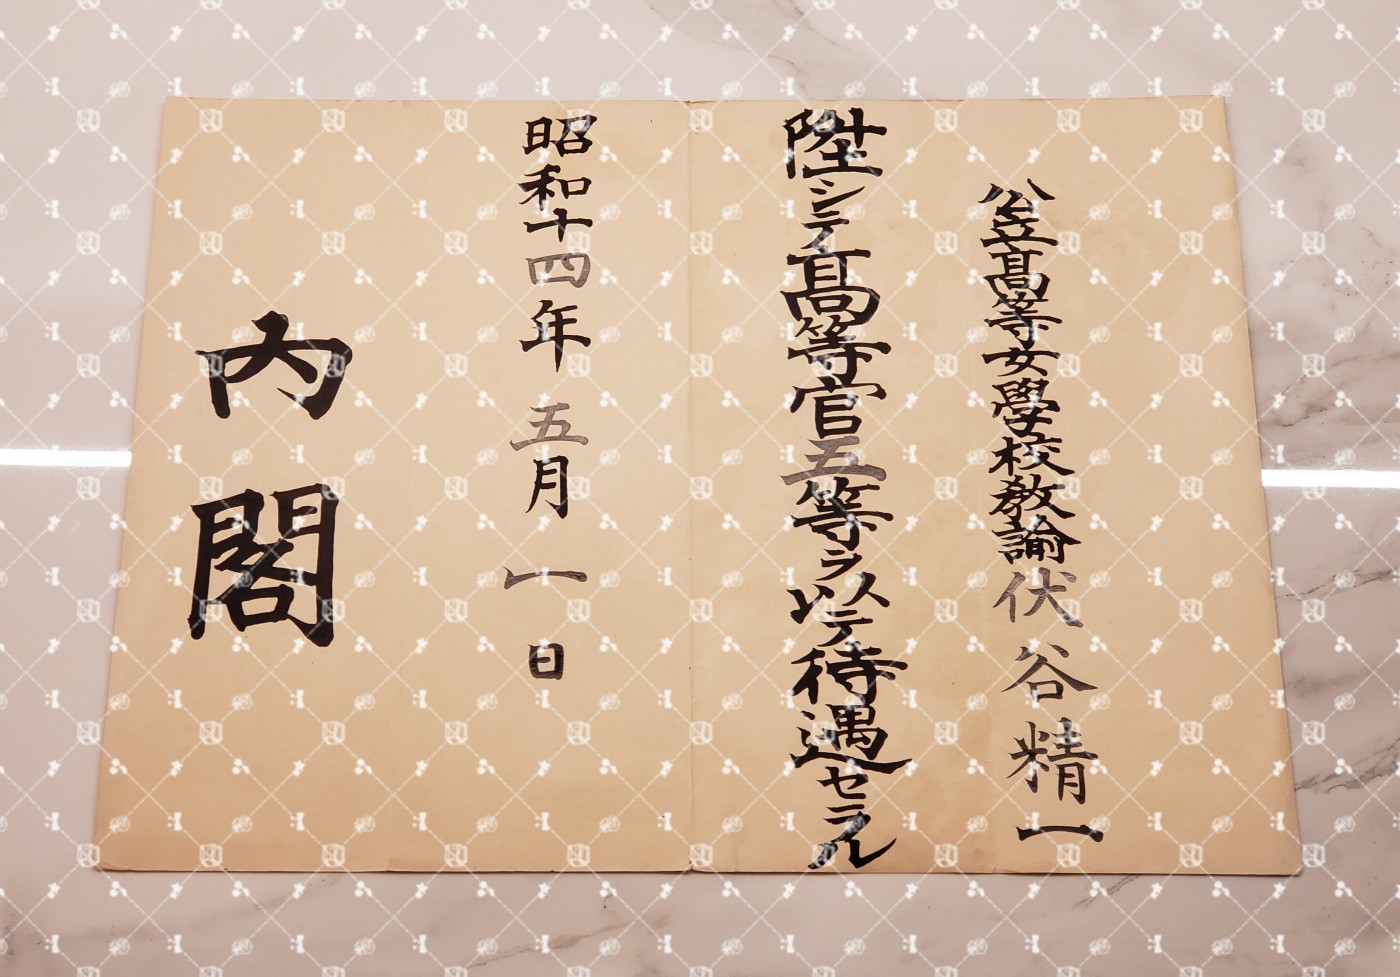 公立高等女學校教諭伏谷精一
陞シテ高等官五等ヲ以テ待遇セラル
昭和十四年五月一日
内閣